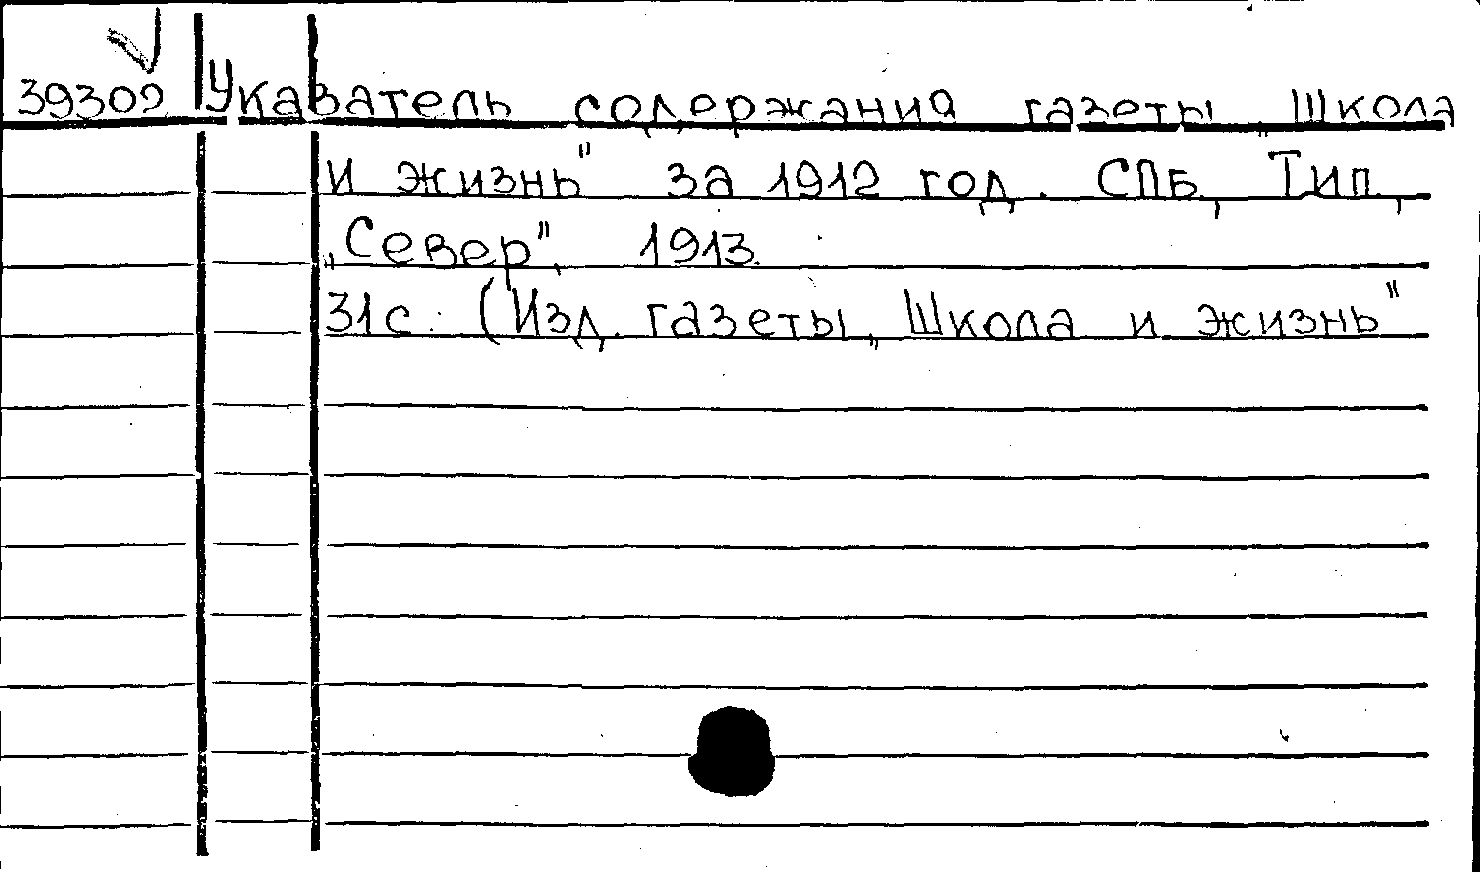 39309 Указатель содержания газеты „Школа
и жизнь" за 1912 год. СПБ, Тип,
„Север", 1913.
31с. (Изд. газеты „Школа и жизнь"